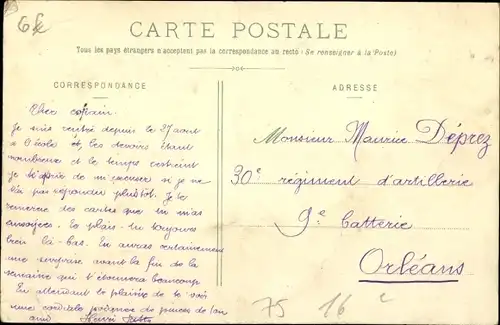 6
CARTE POSTALE
Tous les pays étrangers n'acceptent pas la correspondance au recto (Se renseigner à la Poste)
CORRESPONDANCE
Cher copain.
Je suis rentré depuis le 27 août
à l'école et, les devoirs étant
nombreux et le temps restreint
je te prie de m'excuser si je ne
t'ai pas répondu plutôt. Je te
remercie des cartes que tu m'as
envoyées. Tu plais-tu toujours
bien là-bas. Tu auras certainement
une surprise avant la fin de la
semaine qui t'étonnera beaucoup
En attendant le plaisir de te voir
une cordiale poignée de pinces de ton
ami Henri
ADRESSE
Monsieur Maurice Déprez
30e régiment d'artillerie
9e batterie
Orléans
75 16 c